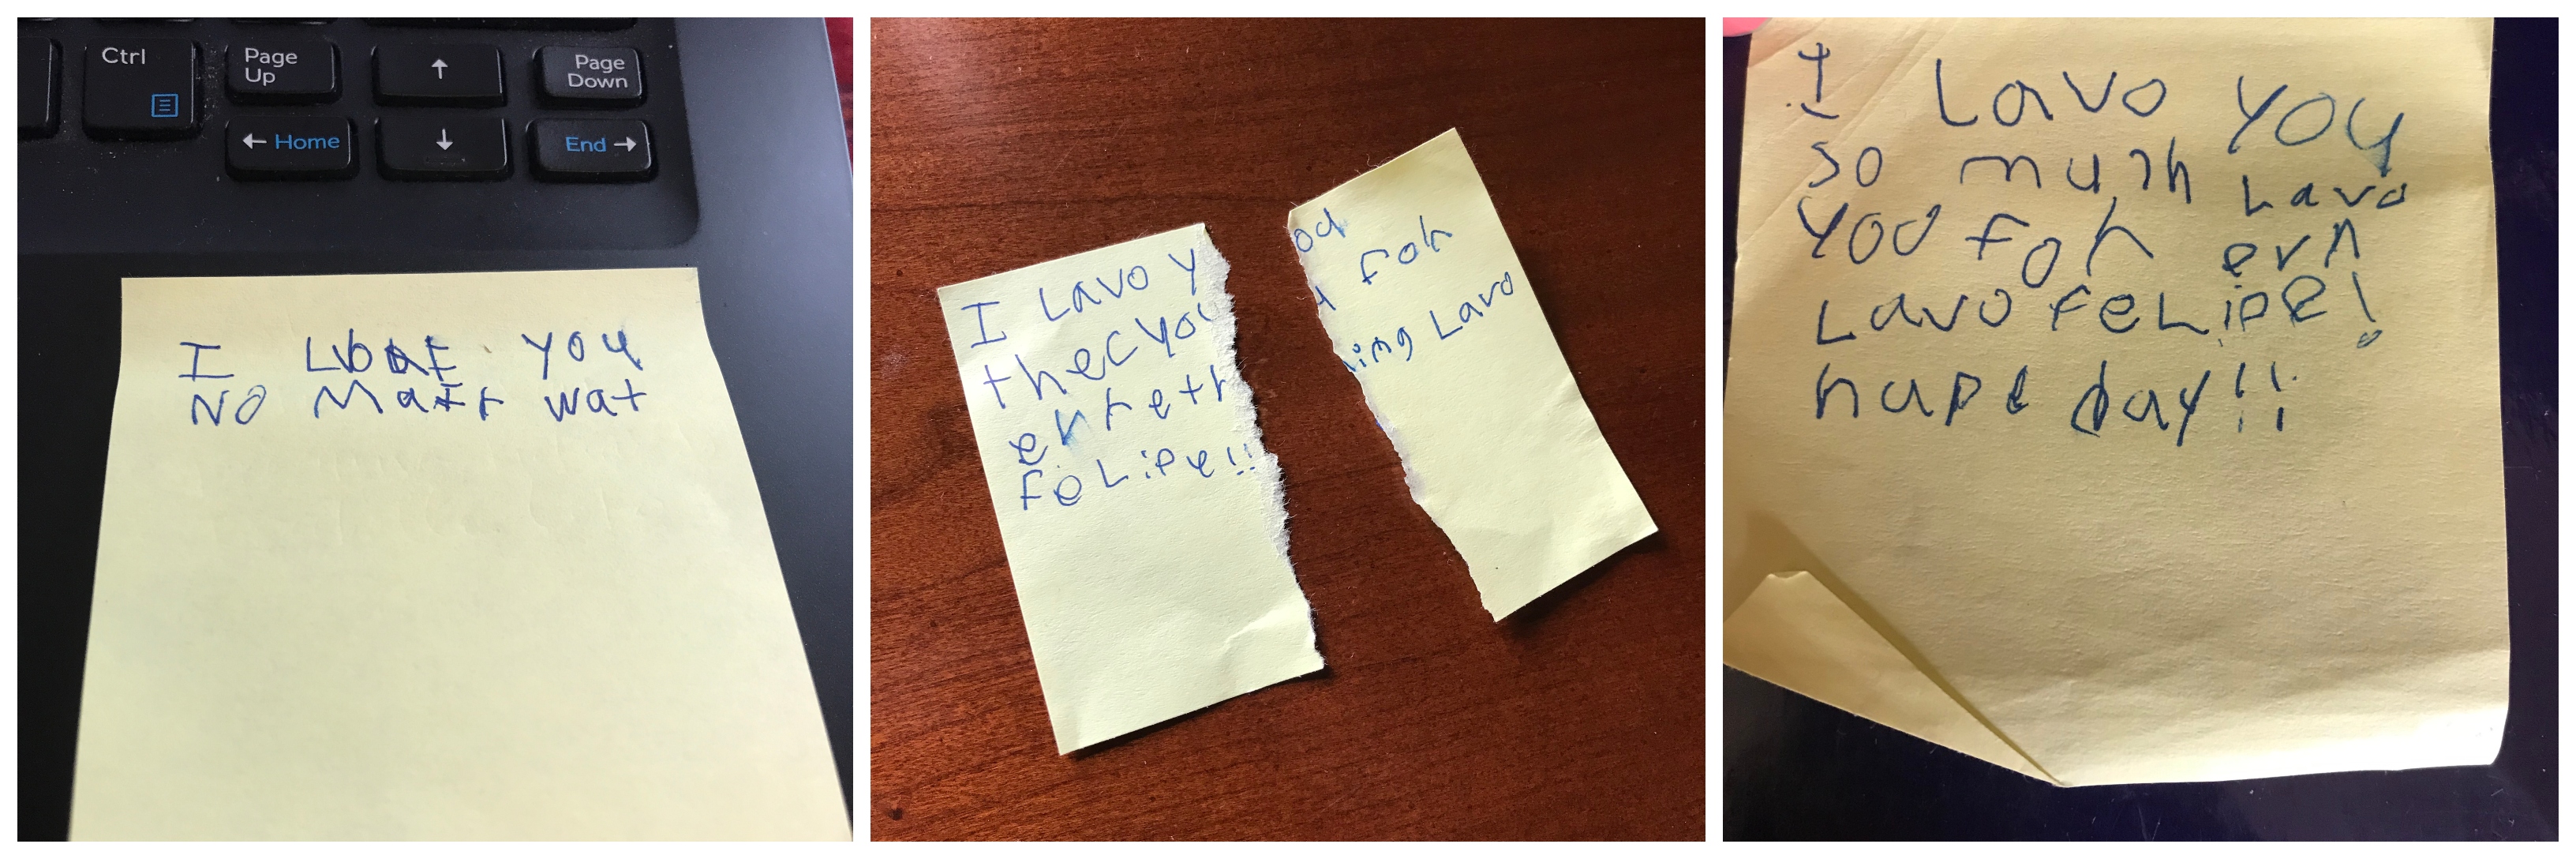 Ctrl
Page Up
↑
Page Down
← Home
↓
End →
I you
NO Matr wat
I Lavo y
thec you
ehreth
feLipe!!
od
foh
ing Lavo
I Lavo you
so muh Lavo
you foh evh
Lavo feLipe!
hape day!!